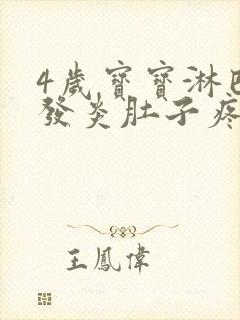 4歲寶寶淋巴
發炎肚子疼
王鳳偉